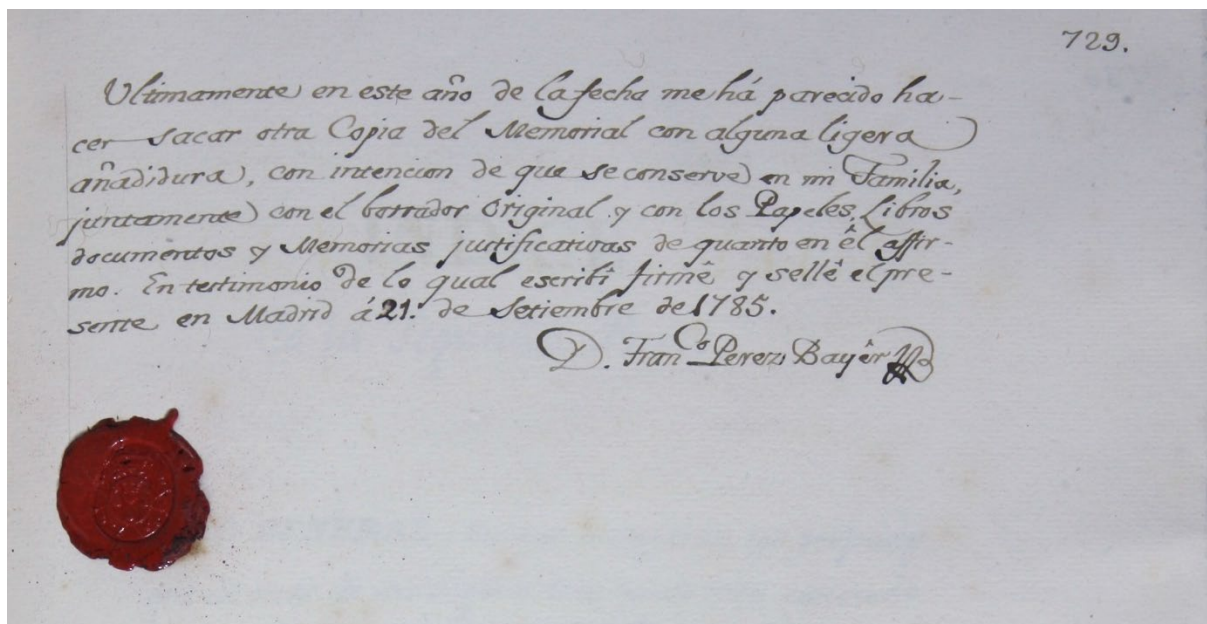 729.
Ultimamente en este año de la fecha me há parecido ha-
cer sacar otra Copia del Memorial con alguna ligera
añadidura, con intencion de que se conserve en mi Familia,
juntamente con el borrador original y con los Papeles, Libros
documentos y Memorias justificativas de quanto en êl affir-
mo. En testimonio de lo qual escribî firmê y sellê el pre-
sente en Madrid á 21. de Setiembre de 1785.
D. Fran.co Perez Bayêr